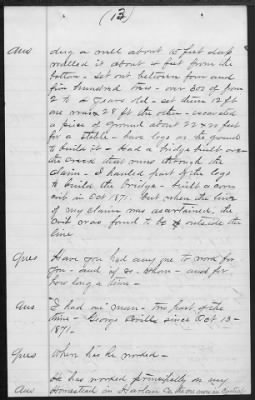 (13)
Ans dug a well about 15 feet deep
walled it about 4 feet from the
bottom - set out between four and
five hundred trees - over 300 of from
2 to 4 years old - set them 12 ft
one way & 28 ft the other - excavated
a piece of ground about 22 x 30 feet
for a stable - have logs on the ground
to build it - Had a bridge built over
the creek that runs through the
claim - I hauled part of the logs
to build the bridge - built a corn
crib in Oct 1871. But when the line
of my claim was ascertained, the
crib was found to be outside the
line
Ques Have you had any one to work for
you - and if so - whom - and for
how long a time -
Ans "I had one man - two part of the
time - George since Oct 13 -
1871 -
Ques Where has he worked -
Ans He has worked principally on my
Homestead in Harlan Co